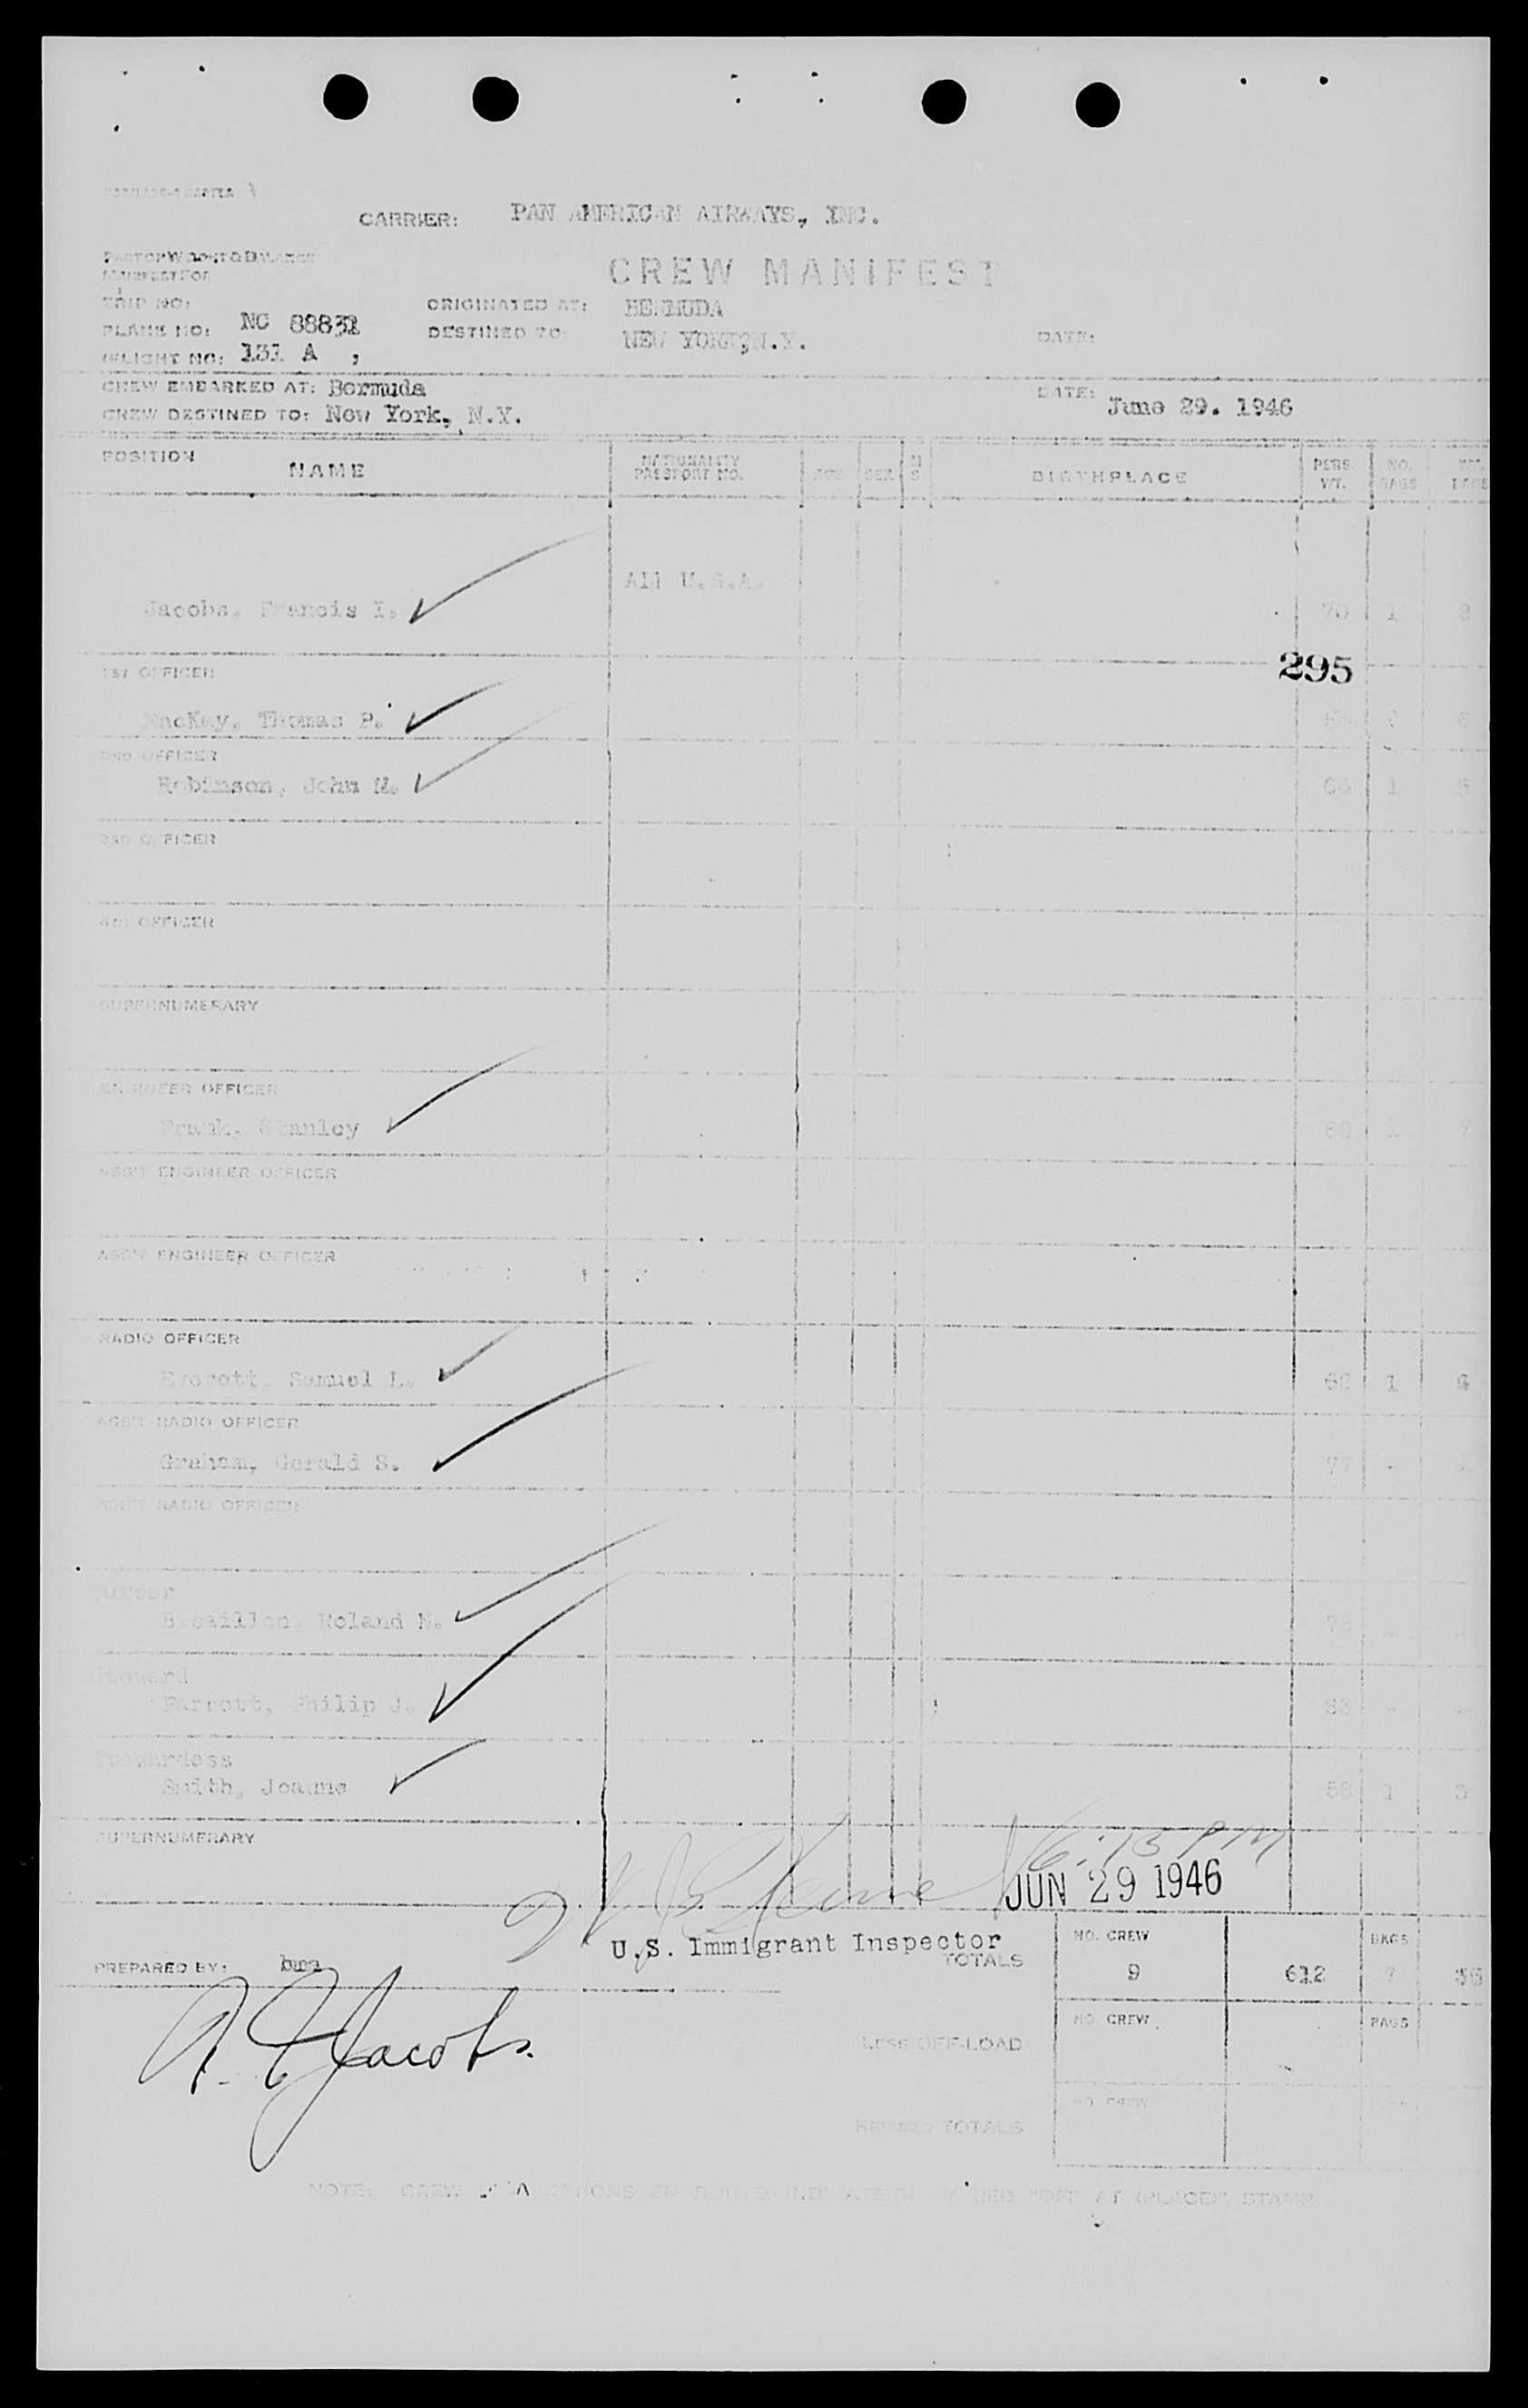 CARRIER: PAN AMERICAN AIRWAYS, INC.
CREW MANIFEST
MANIFEST FOR
TRIP NO: ORIGINATED AT: BERMUDA
PLANE NO: NC 88832 DESTINED TO: NEW YORK, N.Y. DATE:
FLIGHT NO: 131 A
CREW EMBARKED AT: Bermuda DATE: June 29. 1946
CREW DESTINED TO: New York, N.Y.
POSITION NAME NATIONALITY PASSPORT NO. AGE SEX M S BIRTHPLACE PERS. WT. NO. BAGS WT. BAGS
All U.S.A.
Jacobs, Francis I. 70 1
295
1ST OFFICER
MacKay, Thomas P.
2ND OFFICER
Robinson, John M. 1
3RD OFFICER
4TH OFFICER
SUPERNUMERARY
ENGINEER OFFICER
Frank, Stanley
ASS'T ENGINEER OFFICER
ASS'T ENGINEER OFFICER
RADIO OFFICER
Everett, Samuel L. 62 1
ASS'T RADIO OFFICER
Graham, Gerald S. 77 -
ASS'T RADIO OFFICER
Purser
Roland N.
Steward
Philip J.
Stewardess
Smith, Joanne 1
SUPERNUMERARY
6:15 PM
JUN 29 1946
U.S. Immigrant Inspector
TOTALS NO. CREW 9 612 BAGS 7
PREPARED BY:
Jacobs.
LESS OFF-LOAD NO. CREW BAGS
REVISED TOTALS NO. CREW
NOTE: CREW "OFF AT (PLACE)" STAMP